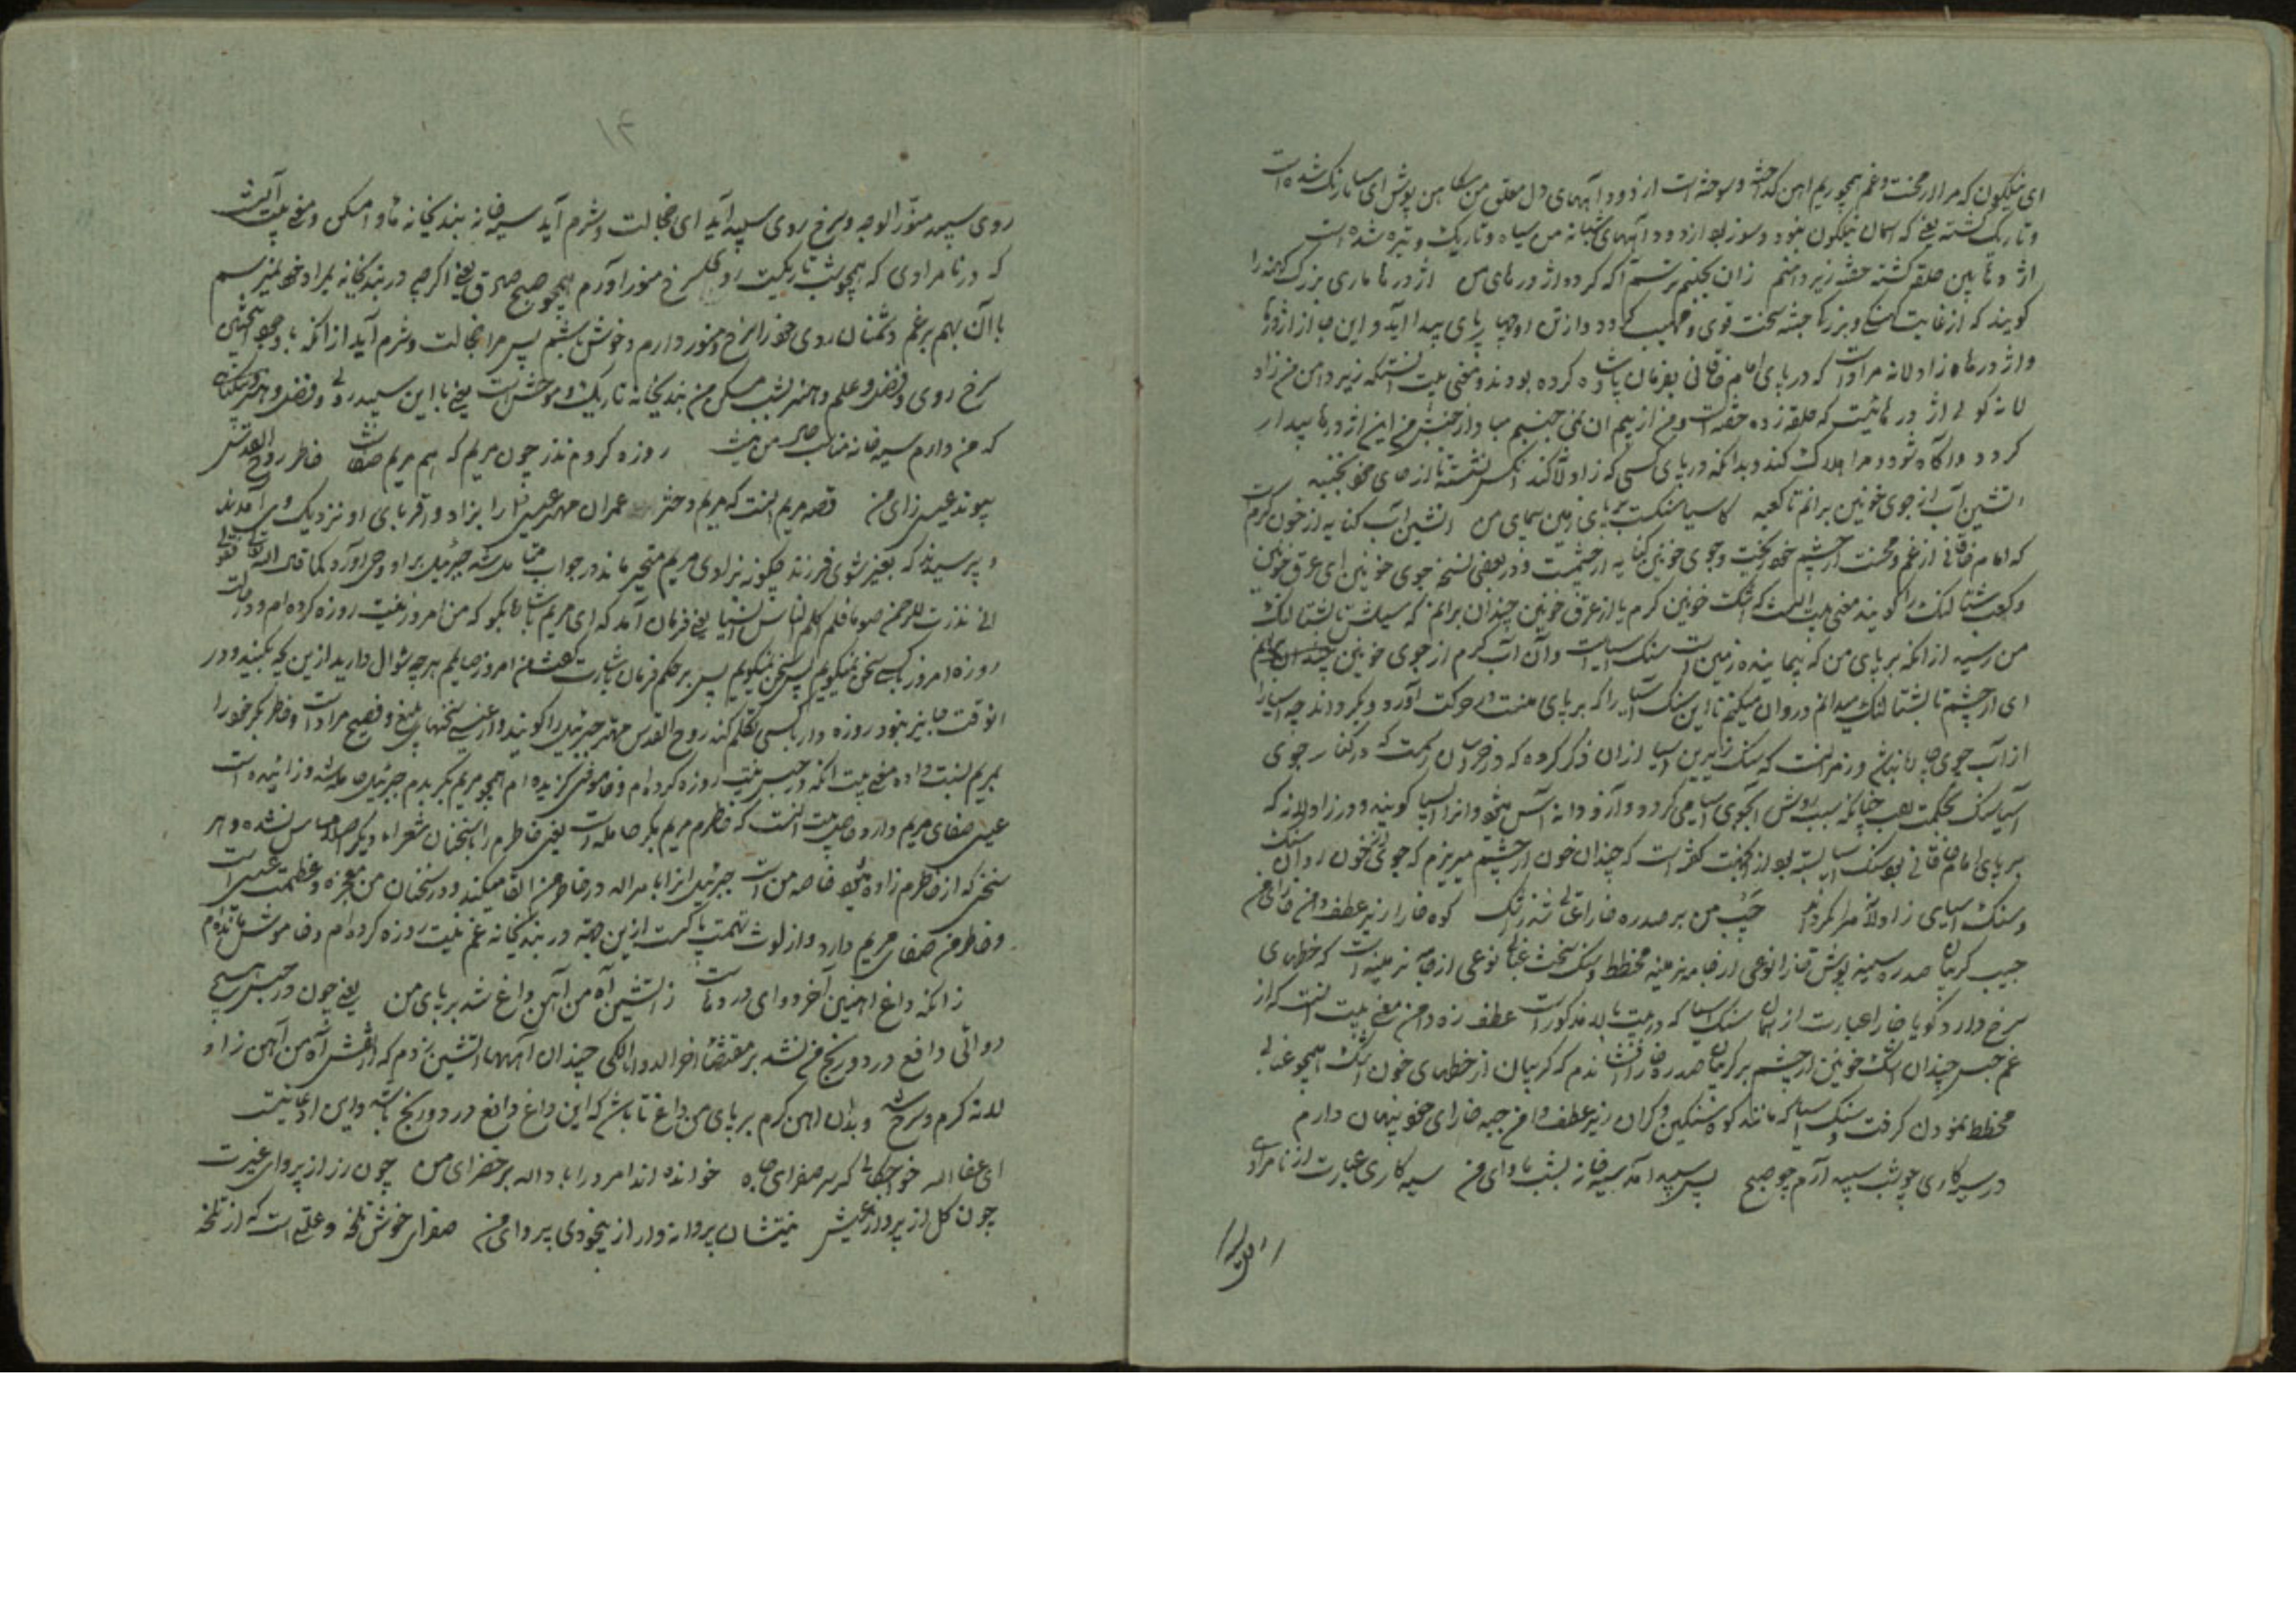 ای نیلگون که مرا از محنت و غم همچو ریم آهن گداخته و سوخته است از دود آههای دل معلق من آهن پوش ای سیاه رنگ شده است
و تاریک گشته یعنی که آسمان نیلگون نبود و سوز بود از دود آههای شبانه من سیاه و تاریک و تیره شده است
اژدها بین حلقه گشته خفته زیر دامنم زان نجنبم ترسم آگه گردد اژدرهای من اژدرها ماری بزرگ کهنه را
گویند که از غایت و بزرگی جثه سخت قوی و مهیب گردد و از تن او چهار پای پیدا آید و این جا از اژدرها
و اژدرها زاولانه مراد است که در پای امام خاقانی بفرمان پادشاه کرده بودند و معنی بیت آنستکه زیر دامن من زاو
لانه گوئی اژدرهائیست که حلقه زده خفته است و من از بیم آن نمی جنبم مبادا از جنبش من این اژدرها بیدار
گردد و آگاه شود و مرا هلاک کند و بدانکه در پای کسی که زاولانه کند آنکس نشسته تا از جای خود نجنبد
آتشین آب از جوی خونین برانم تا کعبه کاسیا سنگست بر پای زمین پیمای من آتشین آب کنایه از خون گرم است
که امام خاقانی از غم و محنت از چشم خود ریخت و جوی خونین کنایه از چشمست و در بعضی نسخه جوی خونین ای عرق خونین
و کعب شتالنگ را گویند معنی بیت آنست که اشک خونین گرم یا از عرق خونین چندان برانم که سیلش تا بشتالنگ
من رسید از آنکه بر پای من که پیماینده زمین است سنگ آسیاست و آن آب گرم از جوی خونین
ای از چشم تا بشتالنگ میرانم و روان میکنم تا این سنگ آسیا را که بر پای منست در حرکت آورد و بگرداند چه آسیا را
از آب جوی چاره نباشد و رمز آنست که سنگ زیرین آسیا از آن ذکر کرده که در خراسان رسمست که در کنار جوی
آسیا سنگ بحکمت نصب چنانکه بسبب روش آب جوی آسیا می گردد و آرد و دانه آس میشود و آنرا آسیا گویند و در زاولانه که
بر پای امام خاقانی بود سنگ آسیا بسته بود از آنجهت گفته است که چندان خون از چشم میریزم که جوئی از خون روان
و سنگ آسیای زاولانه مرا بگرداند جیب من بر صدره خارا عتابی شد ز اشک کوه خارا زیر عطف دامن خارای من
جیب گریبان صدره سینه پوش خارا نوعی از جامه پشمینه مخطط و سنگ سخت عتابی نوعی از جامه پشمینه است که خطهای
سرخ دارد و گویا خارا عبارت از همان سنگ آسیا که در بیت بالا مذکور است عطف زه دامن معنی بیت آنست که از
غم حبس چندان اشک خونین از چشم بر گریبان صدره خارا افشاندم که گریبان از خطهای خون اشک همچو عتابی
مخطط نمودن گرفت و سنگ آسیا که مانند کوه سنگین و گران زیر عطف دامن جبه خارای خود پنهان دارم
در سیه کاری چو شب سپید آرم چو صبح پس سپید آمد سیه خانه بشب ماوای من سیه کاری عبارت از نامرادی
۱۴
روی سپید منور الوجه و سرخ روی سپید آید ای خجالت و شرم آید سیه خانه بندیخانه ماوا مسکن و معنی بیت آنست
که در نامرادی که همچو شب تاریکست روی سرخ منور آورم همچو صبح صادق یعنی اگرچه در بندیخانه بمراد خود نمیرسم
با آن بهم برغم دشمنان روی خود را سرخ و منور دارم و خوش باشم پس مرا خجالت و شرم آید از آنکه با وجود چنین
سرخ روی و فضل و علم و هنر بشب مسکن من بندیخانه تاریک و موحش است یعنی با این سپیدروی و فضل و هنر
که من دارم سیه خانه مناسب حال من نیست روزه کردم نذر چون مریم که هم مریم صفاست خاطر روح القدس
پیوند عیسی زای من قصه مریم آنست که مریم دختر عمران مهتر عیسی را بزاد و اقربای او نزدیک وی آمدند
و پرسیدند که بغیر شوی فرزند چگونه بزادی مریم متحیر ماند در جواب جبرئیل بر او وحی آورد کما قال الله تعالی
انی نذرت للرحمن صوما فلم اکلم الیوم انسیا یعنی فرمان آمد که ای مریم بگو که من امروز بنیت روزه کرده ام و در
روزه امروز با کسی سخن نمیگویم پس بر حکم فرمان بشارت گفت من امروز صایمم هر چه سوال دارید ازین بچه بکنید و در
آنوقت جایز نبود روزه دار با کسی تکلم کند روح القدس مهتر جبرئیل را گویند و از عیسی سخنهای بلیغ و فصیح مراد است و خاطر بکر خود را
بمریم نسبت داده معنی بیت آنکه در حبس بنیت روزه کرده ام و خاموشی گزیده ام همچو مریم بکر بدم جبرئیل حامله شد و زائیده است
عیسی صفای مریم دارد حاصل بیت آنست که خاطرم مریم بکر حامله است یعنی خاطرم را بسخنان شعراء دیگر مساس نشده و هر
سخنی که از خاطرم زاده شود خاصه من است جبرئیل آنرا بامر اله در خاطر من القا میکند و در سخنان من معجزه و عظمت عیسی است
و خاطر من صفای مریم دارد و از لوث تهمت پاکست ازین جهت در بندیخانه غم بنیت روزه کرده ام و خاموش مانده ام
زانکه داغ آهنین آخر دوای دردهاست ز آتشین آه من آهن داغ شد بر پای من یعنی چون در حبس هیچ
دوائی دافع درد و رنج من نشد بر مقتضاء آخر الدواء الکی چندان آهها آتشین بزدم که از آتش آه من آهن زاو
لانه گرم و سرخ شد و بدان آهن گرم بر پای من داغ تا باشد که این داغ دافع درد و رنج باشد و این ادعائیست
ای عفا اله خواجگانی کز سر صفرای جاه خوانده اند امروز اباد اله بر خضرای من چون رز از پروای غیرت
چون گل از پرواز عیش نیتشان پروانه وار از بیخودی پروای من صفرا خوش تلخه و علتی است که از تلخه